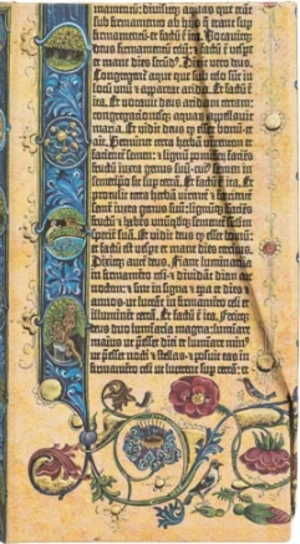 mamentū: divisitq; aquas que erāt
sub firmamento ab hijs q̄ erant sup
firmamentū· et factū ē ita. Vocavitq;
deus firmamentū celū: & factū ē vespe
et mane dies secūdꝰ. Dixit vero deus.
Congregent̄ aque que sub celo sūt in
locū unū & appareat arida. Et factū ē
ita. Et vocavit deus aridam terram:
congregacionesq; aquaꝝ appellavit
maria. Et vidit deus ꝙ esset bonū· et
ait. Germinet terra herbā virentem et
facientē semen: & lignū pomiferū faciēs
fructū iuxta genus suū· cuiꝰ semen in
semetip̄o sit sup terrā. Et factū ē ita. Et
protulit terra herbā virentē & facientē
semē iuxta genus suū: lignūq; faciēs
fructū & habēs unūqdq; sementē scdm
speciē suā. Et vidit deus ꝙ esset bonū:
et factū ē vespe et mane dies tercius.
Dixitq; aut̄ deus. Fiant luminaria
in firmamēto celi· & dividāt diem ac
noctem: & sint in signa & tp̄a et dies &
annos· ut luceāt in firmamēto celi et
illuminēt terrā. Et factū ē ita. Fecitq;
deus duo lumiaria magna: lumiare
maius ut p̄esset diei et lumiare minꝰ
ut p̄esset nocti & stellas· & posuit eas in
firmamēto celi ut lucerent sup terrā: et